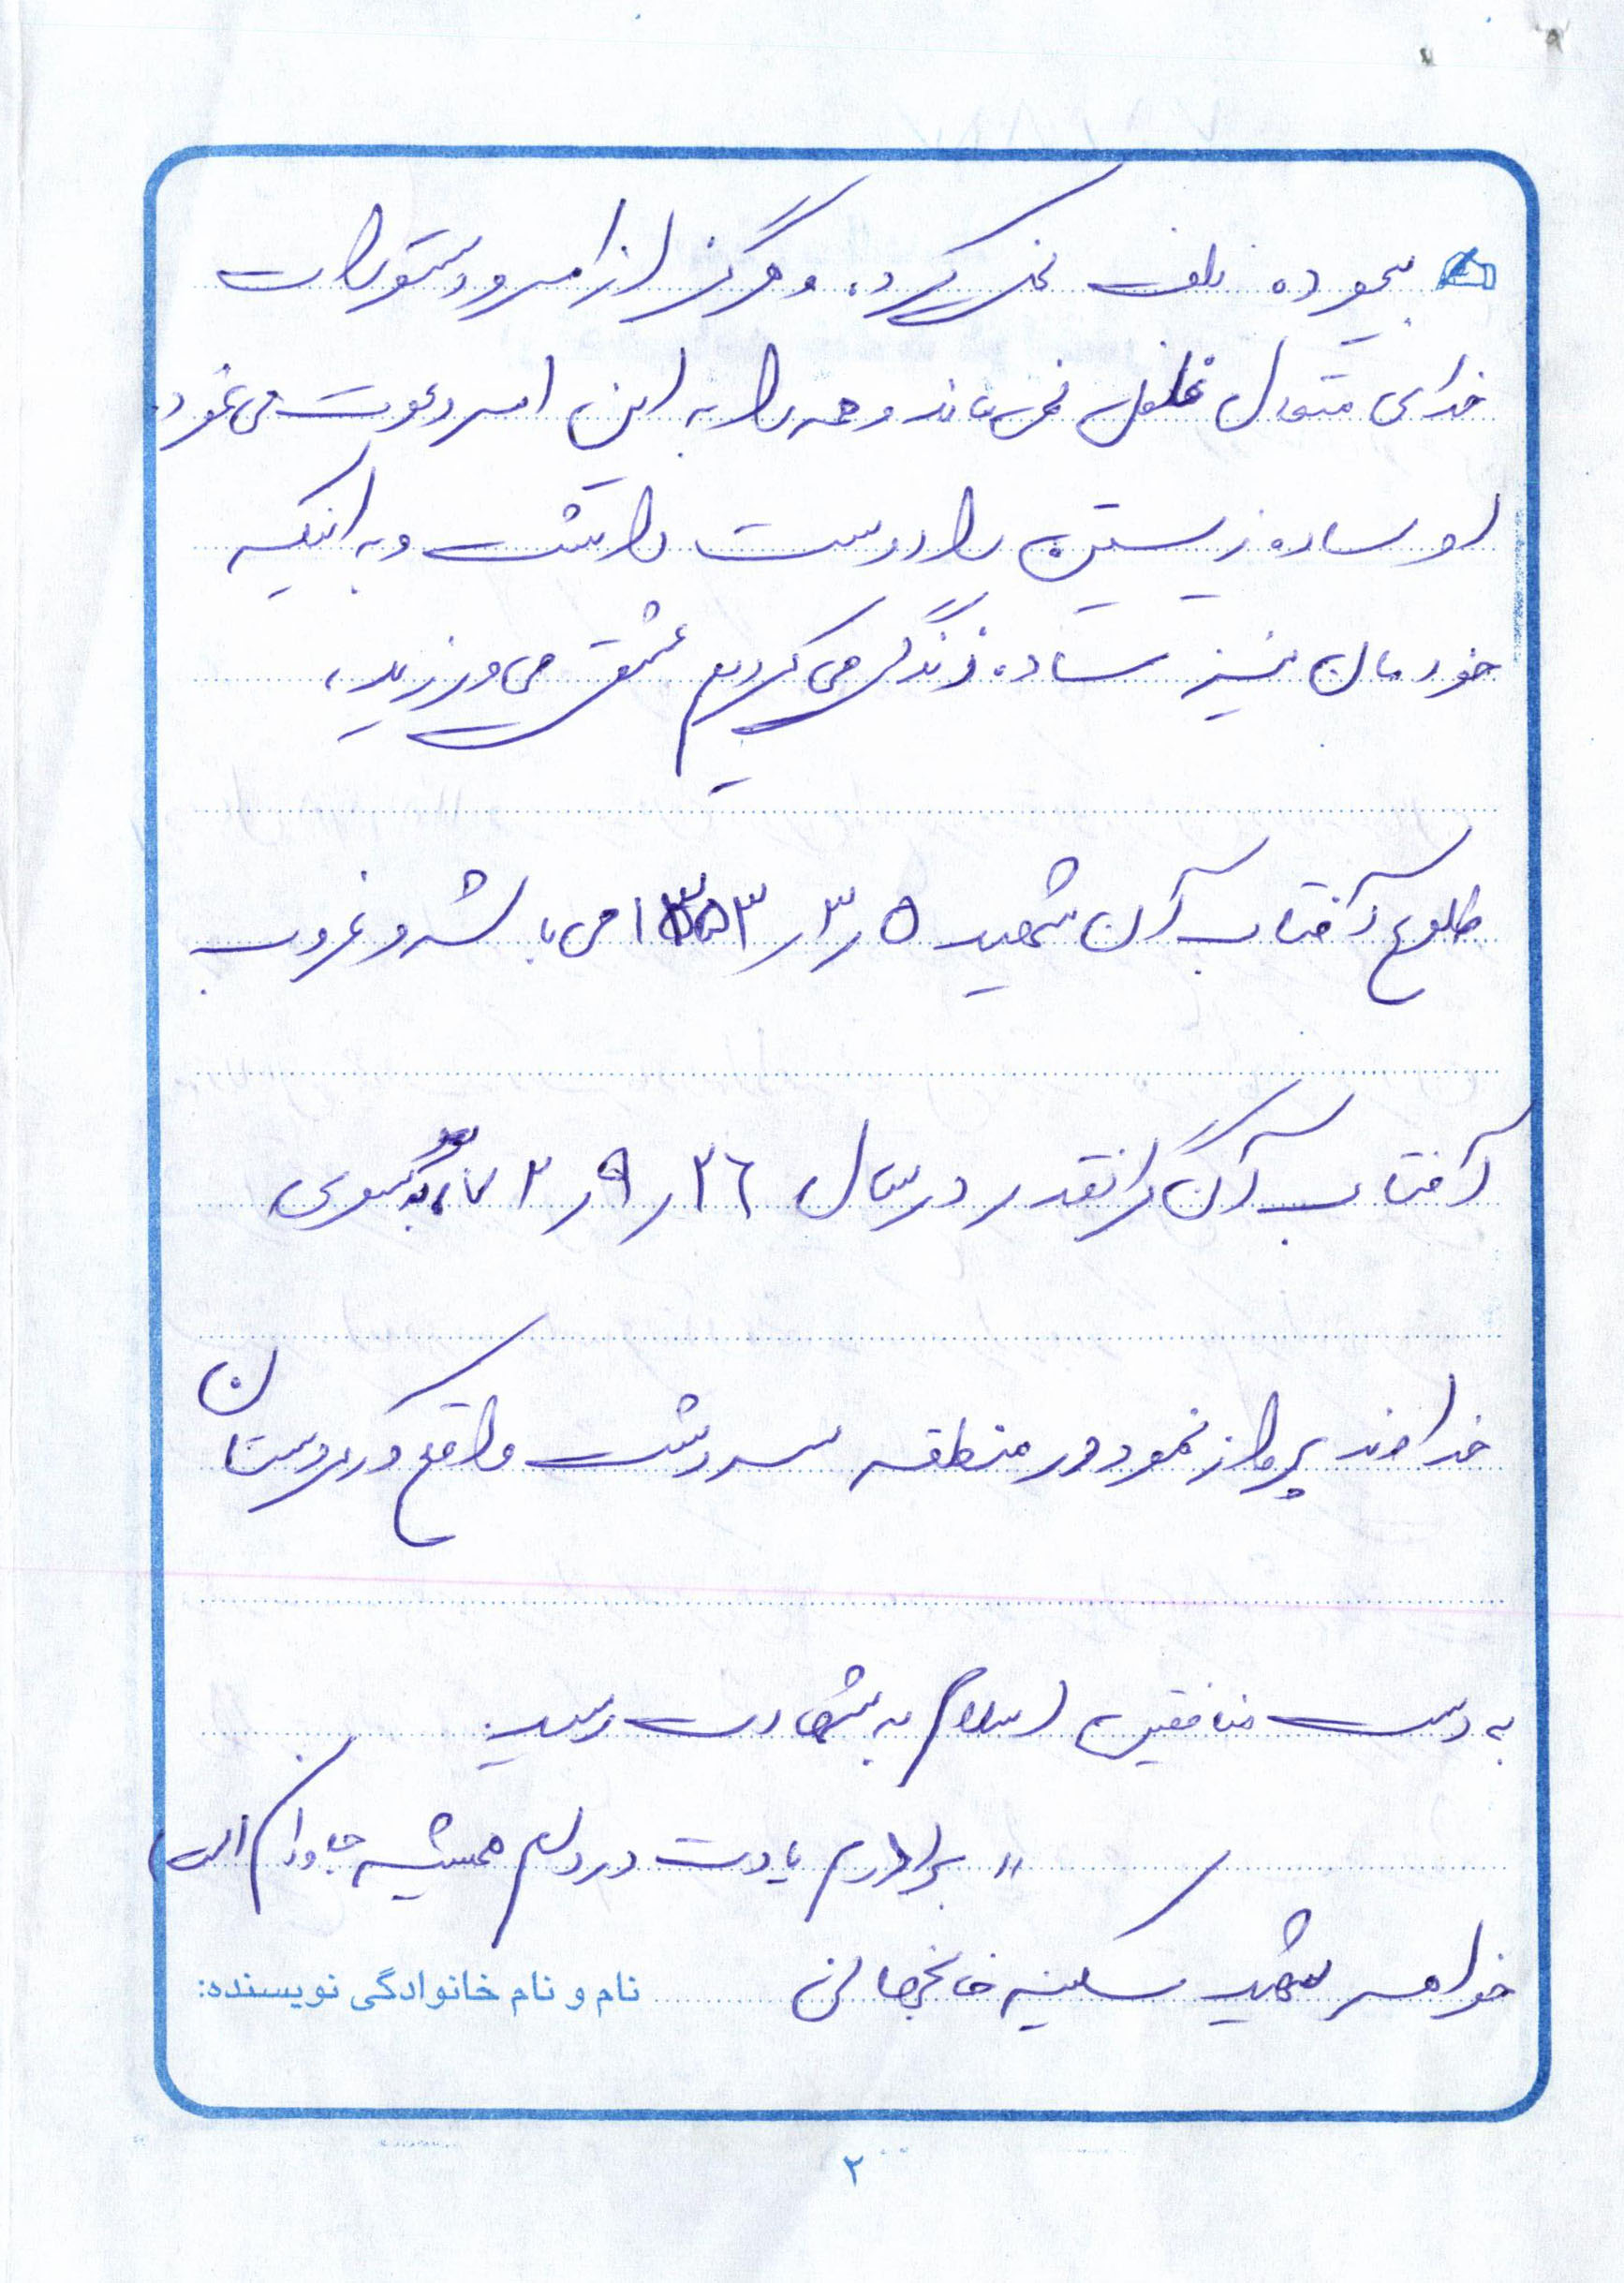 بیهوده تلف نمی‌کرد. و هرگز از امر و دستورات
خدای متعال غافل نمی‌ماند و همه را به این امر دعوت می‌نمود.
او ساده زیستن را دوست داشت و به اینکه
خودمان نیز ساده زندگی می‌کردیم عشق می‌ورزید،
طلوع آفتاب آن شهید ۵ ر ۳ ر ۱۳۵۳ می‌باشد و غروب
آفتاب آن گرانقدر در سال ۲۶ ر ۹ ر ۷۳ به سوی
خداوند پرواز نمود در منطقه سردشت واقع در کردستان
به دست منافقین اسلام به شهادت رسید.
" برادرم یادت در دلم همیشه جاودان است)
خواهر شهید سکینه خانجهانی
نام و نام خانوادگی نویسنده:
۲